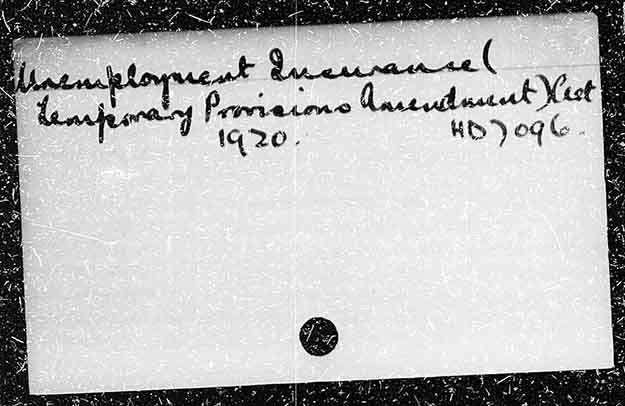 Unemployment Insurance (
Temporary Provisions Amendment) Act
1920.
HD7096.